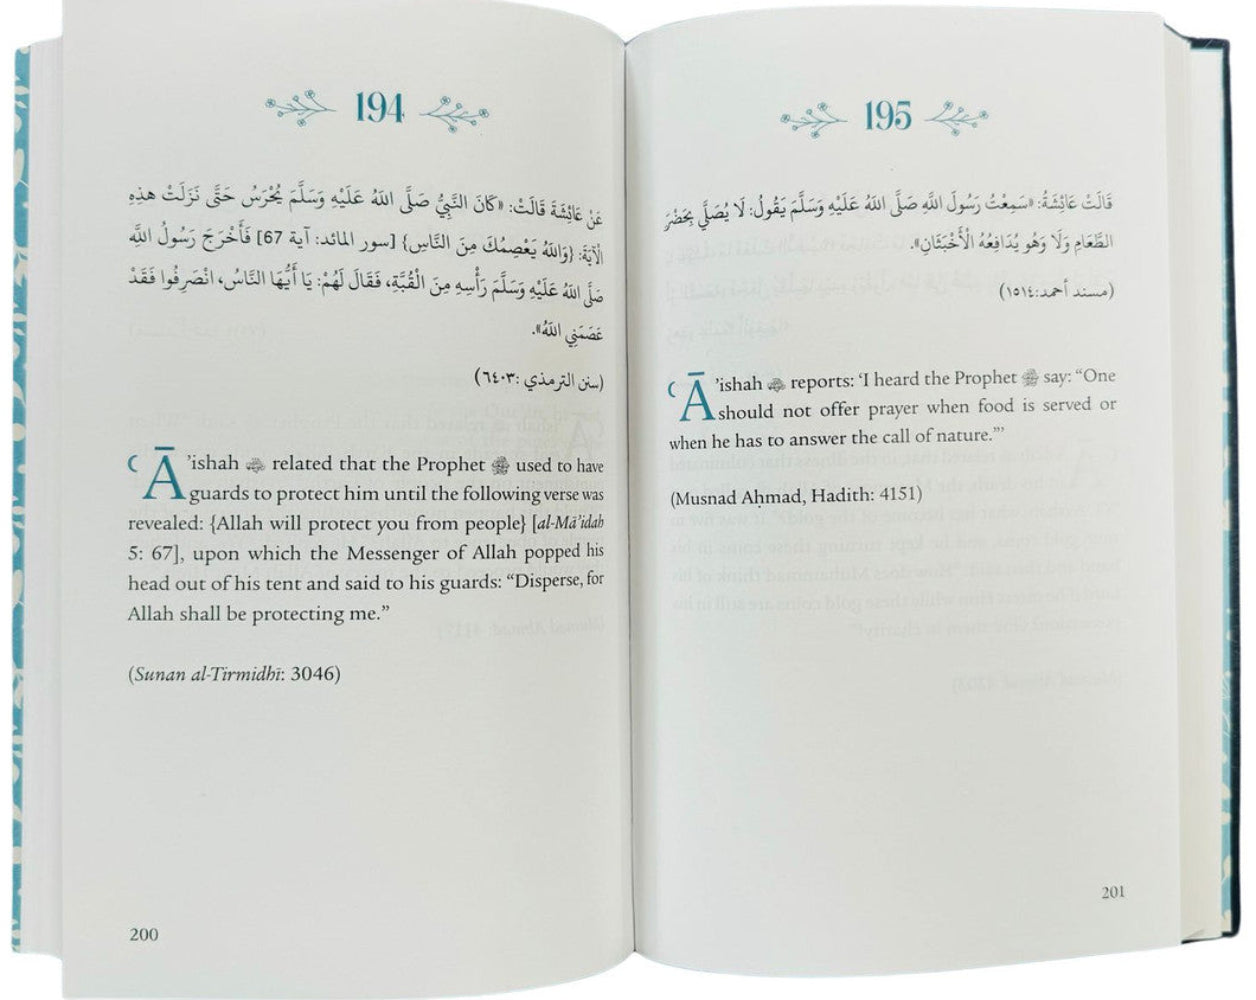 194
عَنْ عَائِشَةَ قَالَتْ: «كَانَ النَّبِيُّ صَلَّى اللهُ عَلَيْهِ وَسَلَّمَ يُحْرَسُ حَتَّى نَزَلَتْ هذِهِ
الْآيَةَ: {وَاللهُ يَعْصِمُكَ مِنَ النَّاسِ} [سور المائد: آية 67] فَأَخْرَجَ رَسُولُ اللهِ
صَلَّى اللهُ عَلَيْهِ وَسَلَّمَ رَأْسِهِ مِنَ الْقُبَّةِ، فَقَالَ لَهُمْ: يَا أَيُّهَا النَّاسُ، انْصَرِفُوا فَقَدْ
عَصَمَنِي اللهُ».
(سنن الترمذي :٦٤٠٣)
ʿĀ'ishah ؓ related that the Prophet ﷺ used to have
guards to protect him until the following verse was
revealed: {Allah will protect you from people} [al-Mā'idah
5: 67], upon which the Messenger of Allah popped his
head out of his tent and said to his guards: “Disperse, for
Allah shall be protecting me.”
(Sunan al-Tirmidhī: 3046)
200
195
قَالَتْ عَائِشَةُ: «سَمِعْتُ رَسُولَ اللَّهِ صَلَّى اللهُ عَلَيْهِ وَسَلَّمَ يَقُولُ: لَا يُصَلَّي بِحَضْرَ
الطَّعَامِ وَلَا وَهُو يُدَافِعُهُ الْأَخْبَثَانِ».
(مسند أحمد:١٥١٤)
ʿĀ'ishah ؓ reports: ‘I heard the Prophet ﷺ say: “One
should not offer prayer when food is served or
when he has to answer the call of nature.”’
(Musnad Aḥmad, Hadith: 4151)
201